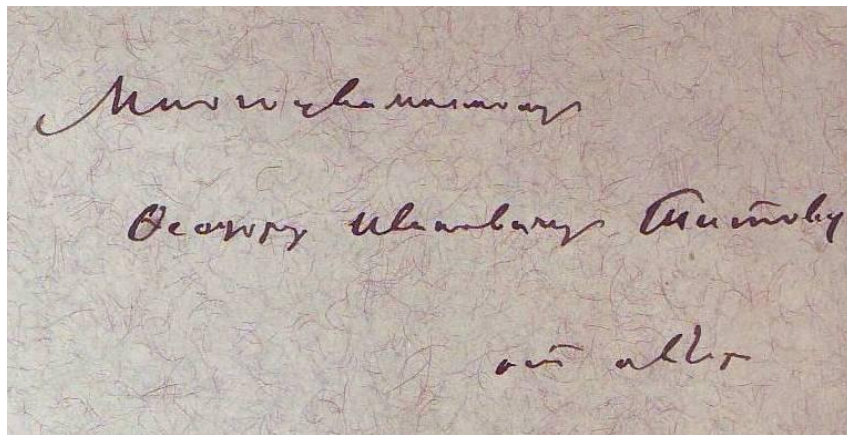 Многоуважаемому
Ѳеодору Ивановичу Титову
от автора